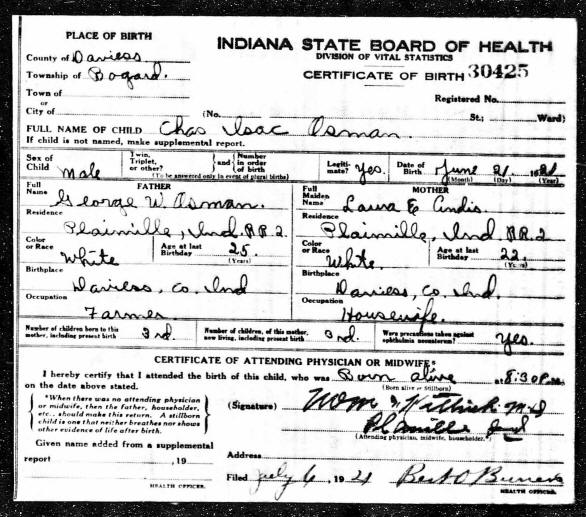 PLACE OF BIRTH
INDIANA STATE BOARD OF HEALTH
DIVISION OF VITAL STATISTICS
CERTIFICATE OF BIRTH 30425
County of Daviess
Township of Bogard.
Town of
or
City of
Registered No.
(No. St.; Ward)
FULL NAME OF CHILD Chas Isac Osman.
If child is not named, make supplemental report.
Sex of Child Male
Twin, Triplet, or other? } and { Number in order of birth
(To be answered only in event of plural births)
Legitimate? Yes.
Date of Birth June 21
(Month) (Day) (Year)
FATHER
Full Name George W. Osman.
Residence
Plainville, Ind R.R.2.
Color or Race White
Age at last Birthday 25.
(Years)
Birthplace
Daviess, Co. Ind
Occupation
Farmer
MOTHER
Full Maiden Name Laura E Andis.
Residence
Plainville, Ind R.R.2
Color or Race White.
Age at last Birthday 22.
(Years)
Birthplace
Daviess, Co. Ind.
Occupation
Housewife.
Number of children born to this mother, including present birth 3rd.
Number of children, of this mother, now living, including present birth 3rd.
Were precautions taken against ophthalmia neonatorum? Yes.
CERTIFICATE OF ATTENDING PHYSICIAN OR MIDWIFE*
I hereby certify that I attended the birth of this child, who was Born alive at 8:30 P.M.
(Born alive or Stillborn)
on the date above stated.
*When there was no attending physician
or midwife, then the father, householder,
etc., should make this return. A stillborn
child is one that neither breathes nor shows
other evidence of life after birth.
(Signature) Wm M D
Plainville Ind
(Attending physician, midwife, householder.*)
Given name added from a supplemental
report , 19
HEALTH OFFICER.
Address
Filed July 6, 1921 Bert O
HEALTH OFFICER.